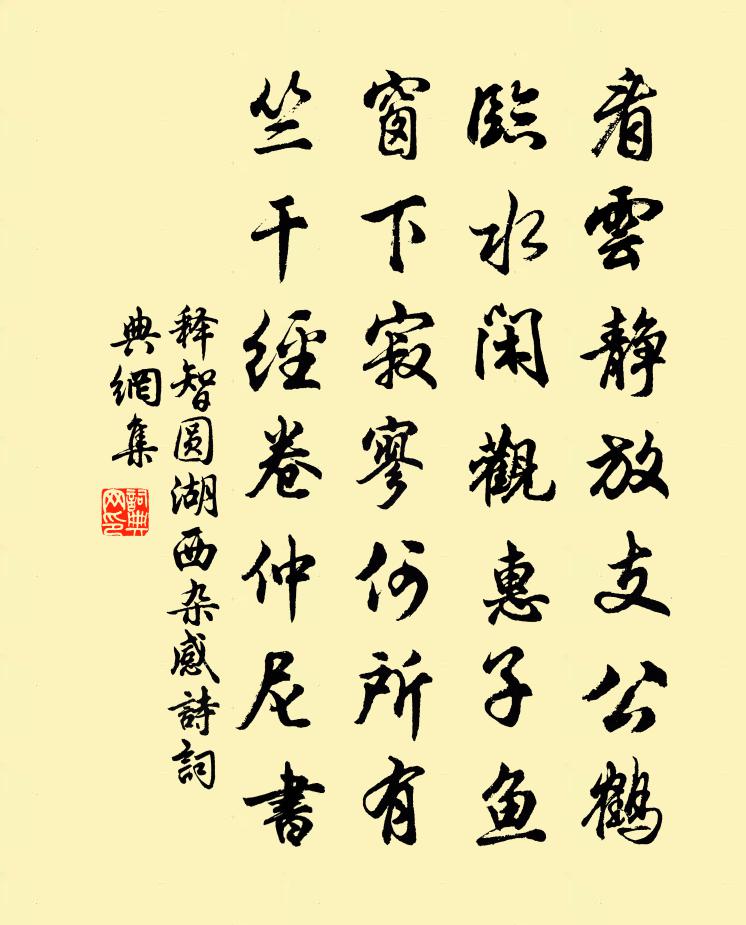 看雲静放支公鹤
臨水閑觀惠子鱼
窗下寂寥何所有
竺干經卷仲尼書
释智圆湖西杂感詩詞
典網集
詞典网印